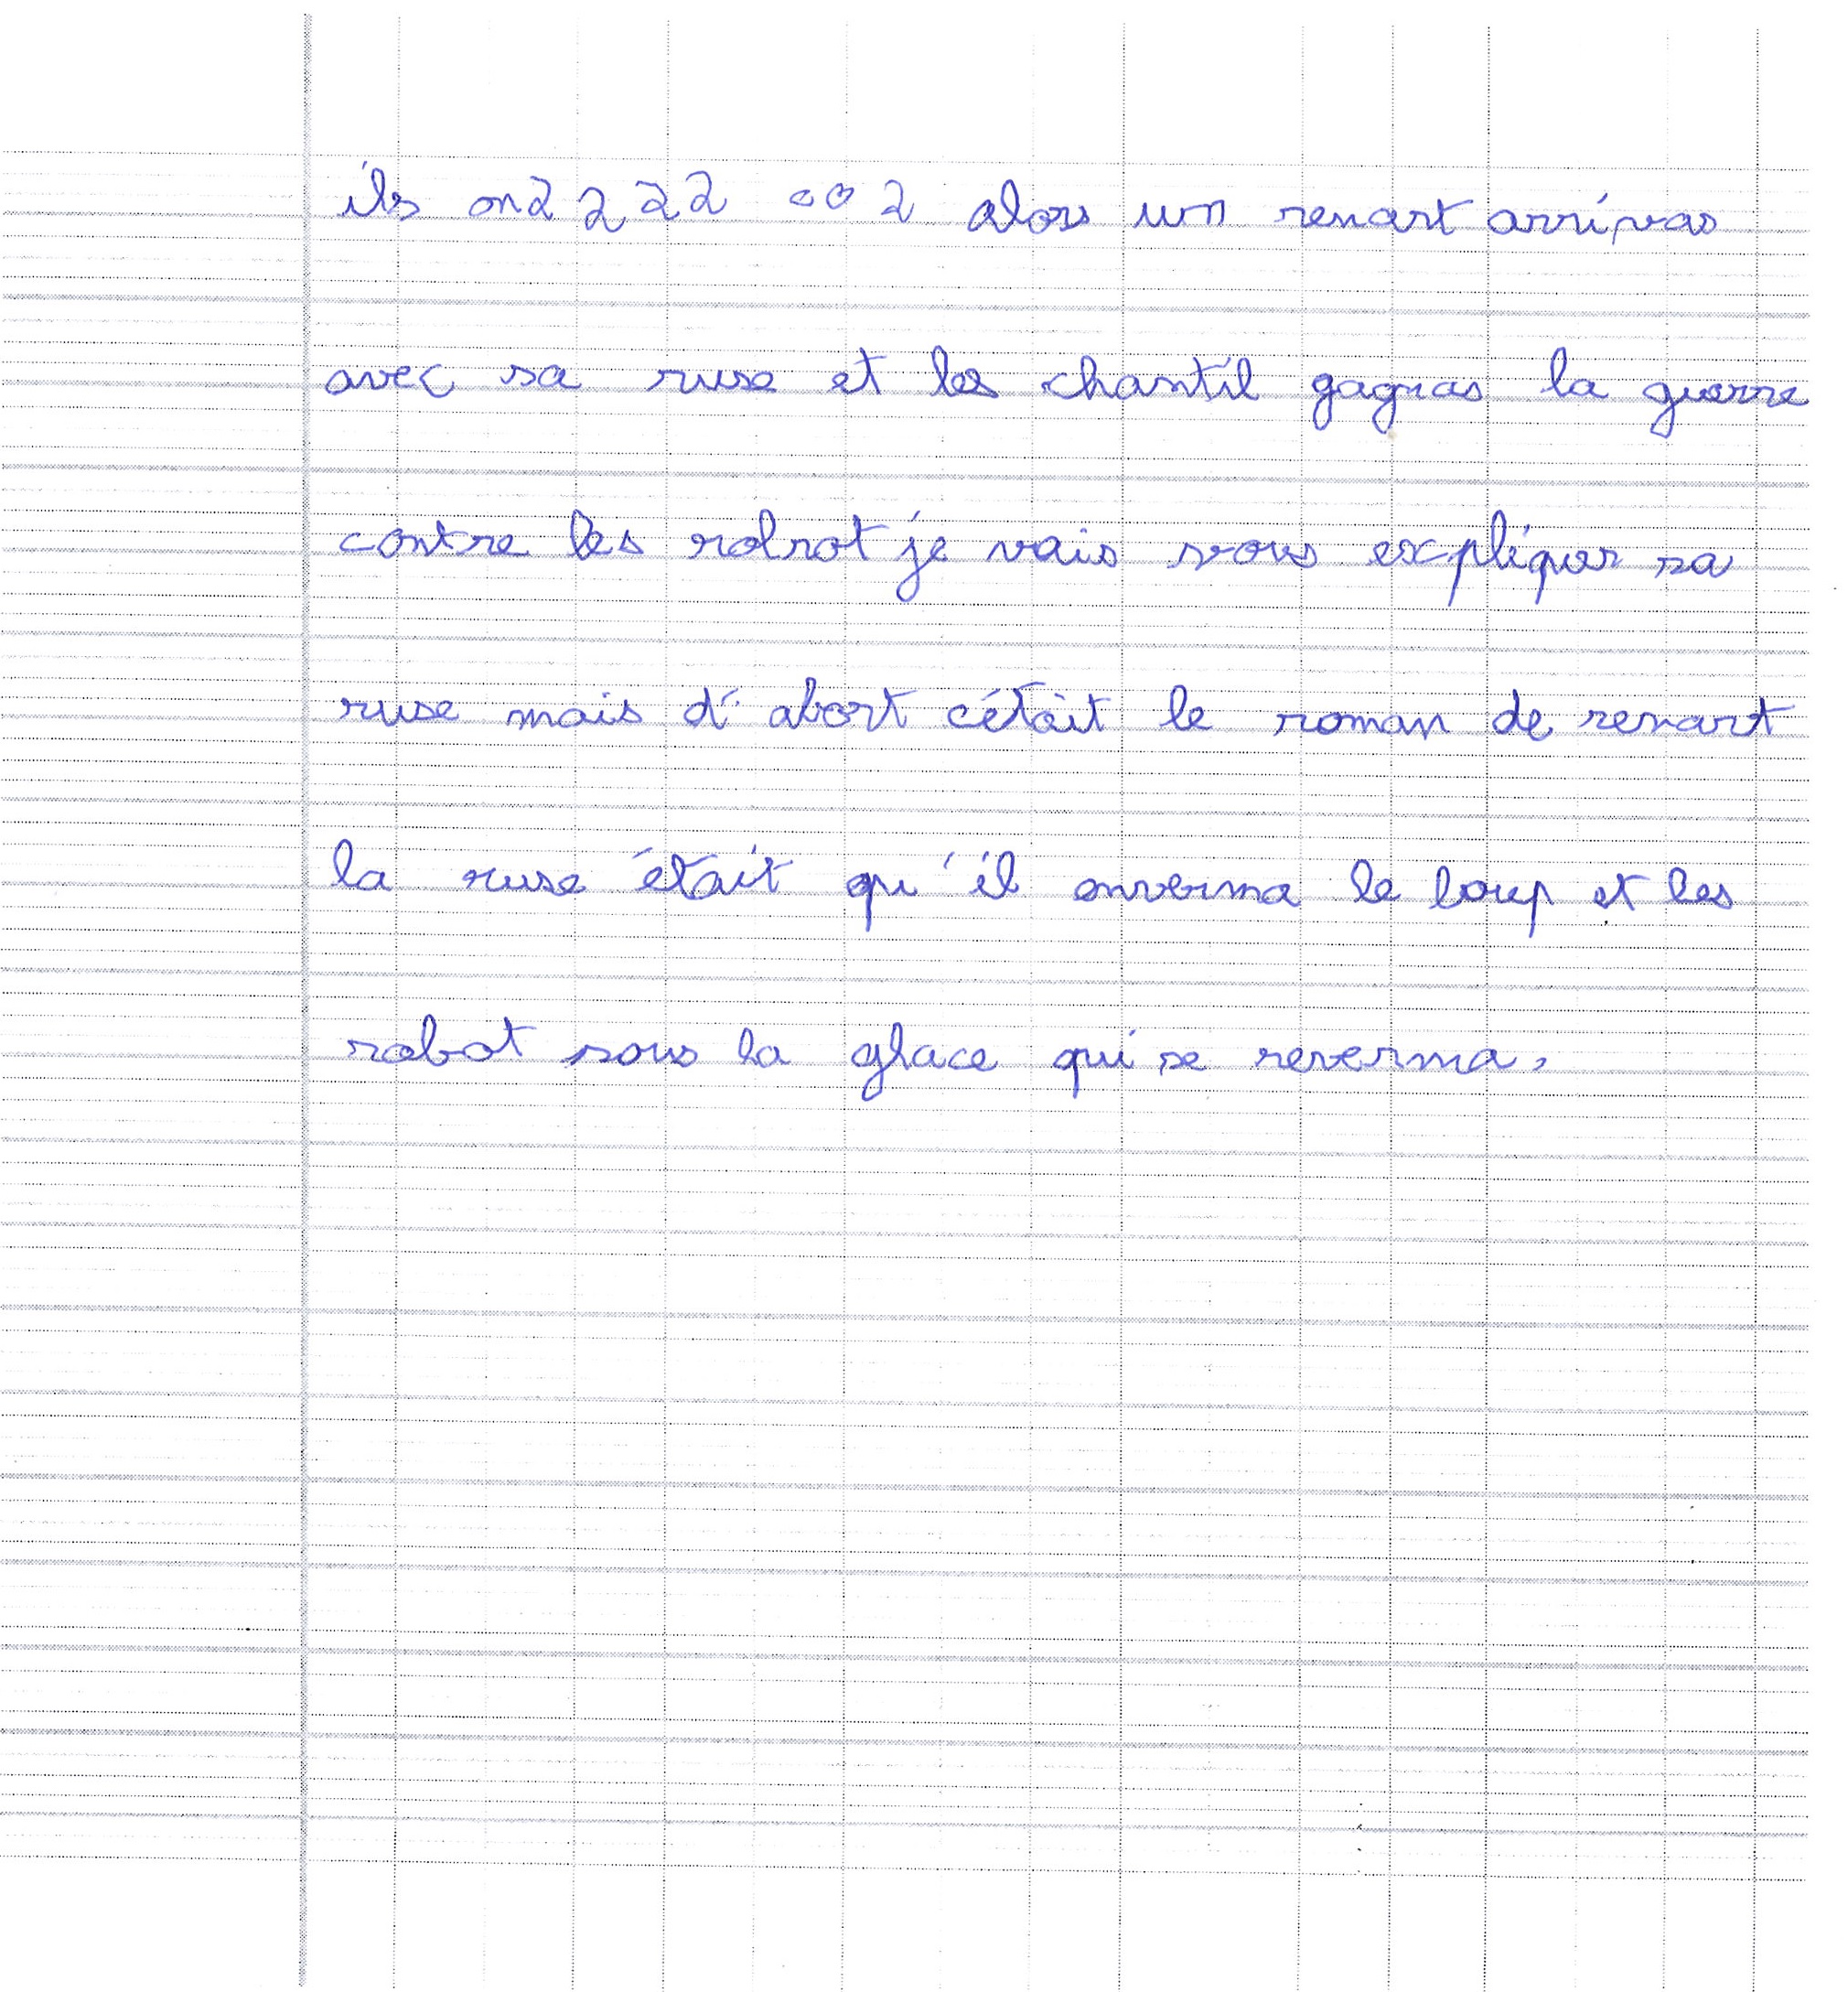 ils on 2 2 2 2 002 alors un renart arrivas
avec sa ruse et les chantil gagnas la guerre
contre les robot je vais vous expliquer sa
ruse mais d'abort c'était le roman de renart
la ruse était qu'il enverma le loup et les
robot sous la glace qui se reverma.